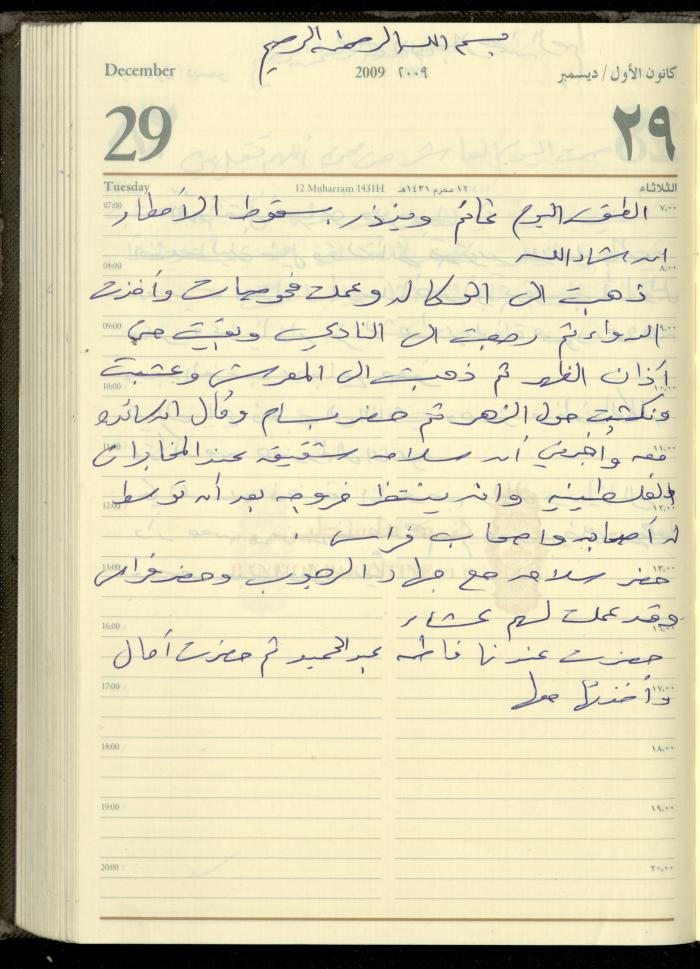 بسم الله الرحمن الرحيم
December 2009 ٢٠٠٩ كانون الأول / ديسمبر
29 ٢٩
Tuesday 12 Muharram 1431H ١٢ محرم ١٤٣١هـ الثلاثاء
07:00 الطقس اليوم غائم وينذر بسقوط الأمطار ٧,٠٠
ان شاء الله
08:00 ٨,٠٠
ذهبت الى الوكاله وعملت فحوصات وأخذت
09:00 الدواء ثم رجعت الى النادي وبقيت حتى ٩,٠٠
آذان الظهر ثم ذهبت الى المعرش وعشبت
10:00 ١٠,٠٠
ونكشت حول الزهر ثم حضر بسام وقال ان سائده
11:00 معه وأخبرني أن سلامه شقيقه عند المخابرات ١١,٠٠
الفلسطينيه وانه ينتظر خروجه بعد أن توسط
12:00 ١٢,٠٠
له أصحابه واصحاب فراس
13:00 حضر سلامه مع جهاد الرجوب وحضر فراس ١٣,٠٠
وقد عملت لهم عشاء
16:00
حضرت عندنا فاطمه عبد الحميد ثم حضرت آمال
17:00 وأخذتها ١٧,٠٠
18:00 ١٨,٠٠
19:00 ١٩,٠٠
20:00 ٢٠,٠٠